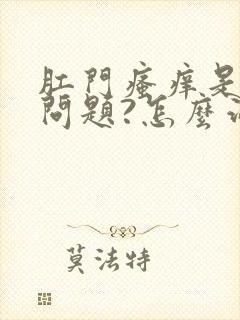 肛門瘙癢是
問題?怎麼
莫法特